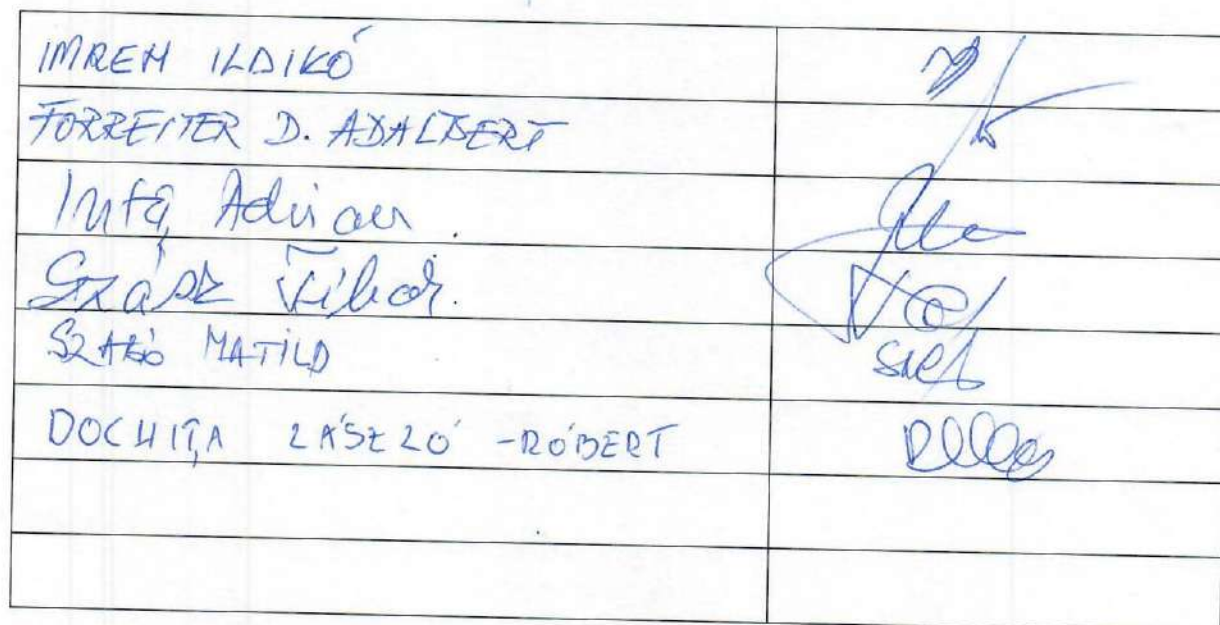 IMREH ILDIKÓ
FORREITER D. ADALBERT
Adrian
Szász Tibor.
SZABÓ MATILD
DOCHIȚA LÁSZLÓ -RÓBERT